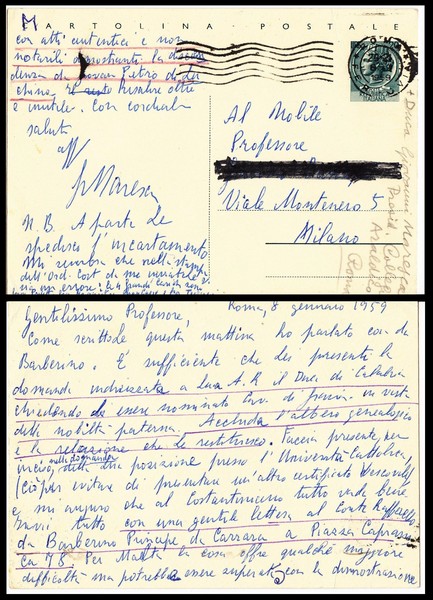 CARTOLINA POSTALE
M
con atti autentici e non
notarili dimostranti la discen
denza di Giovan Pietro di Lu
chino. Risalire oltre
è inutile. Con cordiali
saluti
aff
N.B. A parte Le
spedisco l'incartamento
Mi sembra che nella stampa
dell'Ord. Cost. da me inviatale vi
errore: le 4 grandi
Al Nobile
Professore
Viale Montenero 5
Milano
+ Duca Giovanni Maresca
Roma
Gentilissimo Professore, Roma, 8 gennaio 1959
Come scrittole questa mattina ho parlato con da
Barberino. È sufficiente che Lei presenti la
domanda indirizzata a S.A.R il Duca di Calabria
chiedendo di essere nominato Cav. di in vista
della nobiltà paterna. Accluda l'albero genealogico
e la relazione che Le restituisco. Faccia presente, per
inciso, nella domanda della Sua posizione presso l'Università Cattolica,
(ciò per evitare di presentare un'altro certificato Vescovile)
e mi auguro che al Costantiniano tutto vada bene.
Invii tutto con una gentile lettera al Conte Raffaello
da Barberino Principe da Carrara a Piazza Capranica
ca 78. Per Malta la cosa offre qualche maggiore
difficoltà ma potrebbe essere superata con la dimostrazione